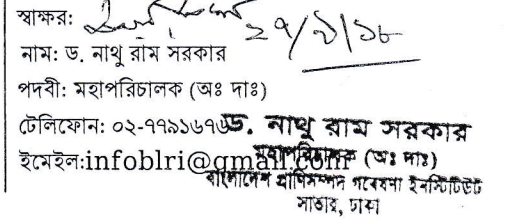 স্বাক্ষর:
২৭/৯/১৮
নাম: ড. নাথু রাম সরকার
পদবী: মহাপরিচালক (অঃ দাঃ)
টেলিফোন: ০২-৭৭৯১৬৭
ইমেইল:infoblri@gmail.com
ড. নাথু রাম সরকার
মহাপরিচালক (অঃ দাঃ)
বাংলাদেশ প্রাণিসম্পদ গবেষণা ইনস্টিটিউট
সাভার, ঢাকা